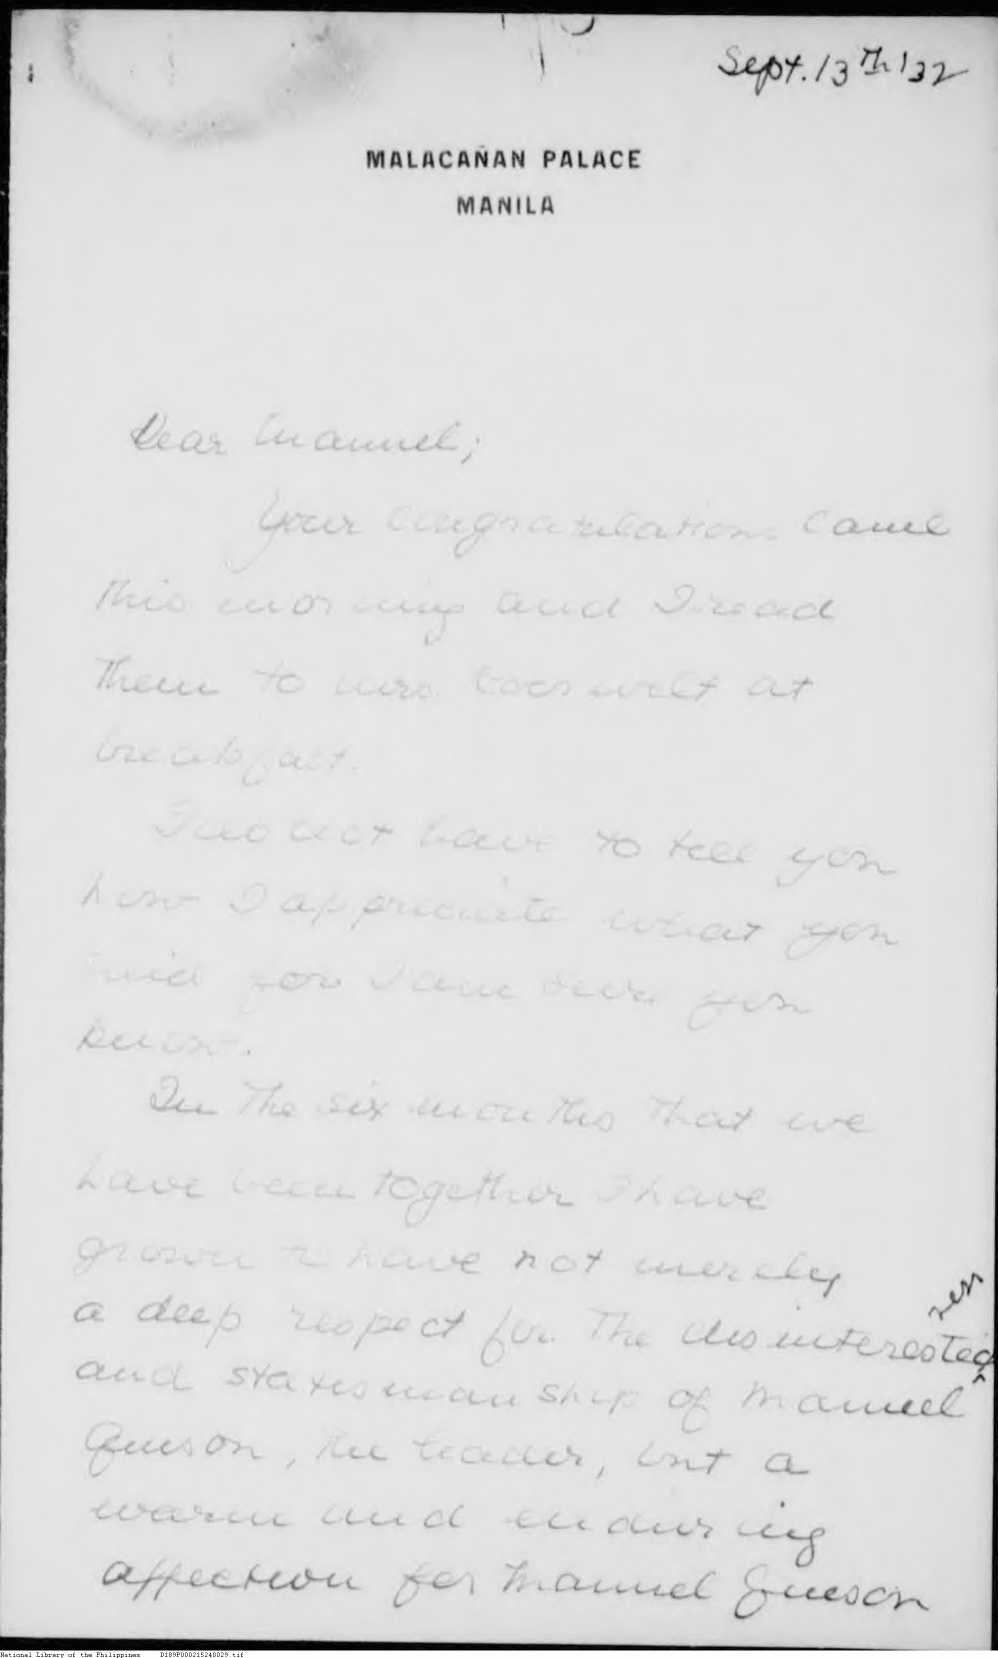 Sept. 13th '32
MALACAÑAN PALACE
MANILA
Dear Manuel;
Your congratulations came
this morning and I read
them to Mrs. Roosevelt at
breakfast.
I do not have to tell you
how I appreciate what you
said for I am sure you
know.
In the six months that we
have been together I have
grown to have not merely
ness
a deep respect for the disinterested
and statesmanship of Manuel
Queson, the leader, but a
warm and enduring
affection for Manuel Queson
National Library of the Philippines D189P000215240029.tif